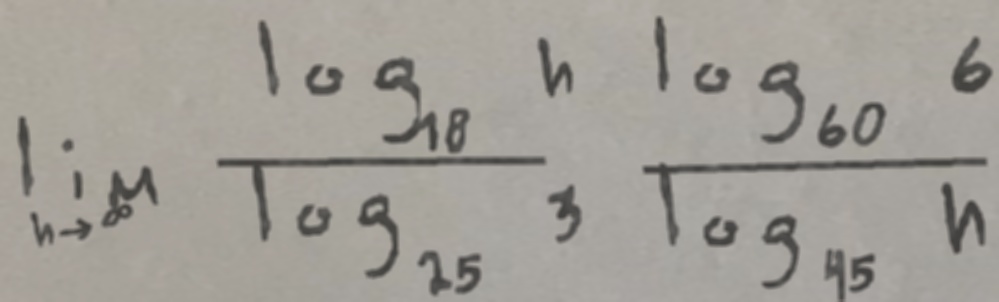 lim h→∞ log₁₈ h / log₂₅ 3 log₆₀ 6 / log₄₅ h